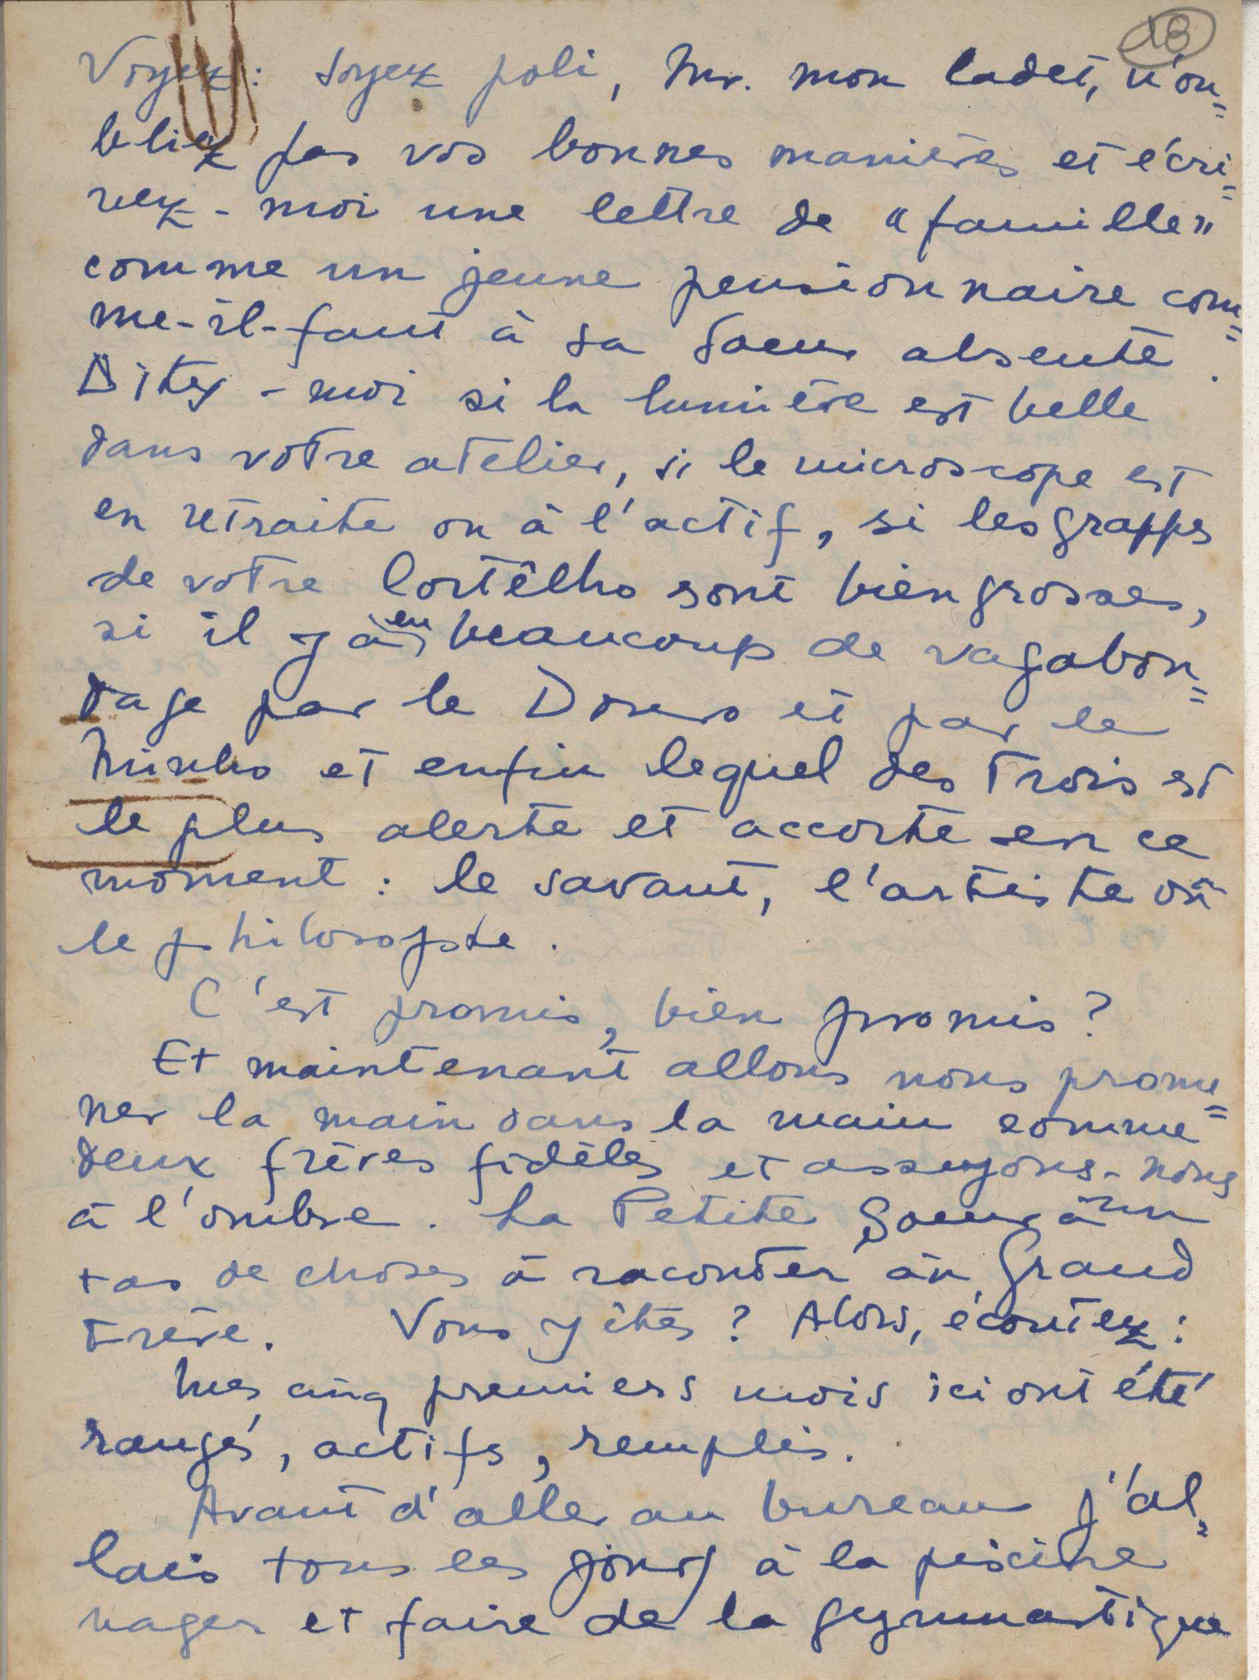 18
Voyez : soyez poli, Mr. mon cadet, n'ou=
bliez pas vos bonnes manières et écri=
vez-moi une lettre de "famille"
comme un jeune pensionnaire com=
me-il-faut à sa soeur absente.
Dites-moi si la lumière est belle
dans votre atelier, si le microscope est
en retraite ou à l'actif, si les grappes
de votre Cortêlho sont bien grosses,
si il y à eu beaucoup de vagabon=
dage par le Douro et par le
Minho et enfin lequel des trois est
le plus alerte et accorte en ce
moment : le savant, l'artiste où
le philosophe.
C'est promis, bien promis ?
Et maintenant allons nous prome=
ner la main dans la main comme
deux frères fidèles et asseyons-nous
à l'ombre. La Petite Soeur à un
tas de choses à raconter au Grand
Frère. Vous y êtes ? Alors, écoutez :
Mes cinq premiers mois ici ont été
rangés, actifs, remplis.
Avant d'aller au bureau j'al=
lais tous les jours à la piscine
nager et faire de la gymnastique